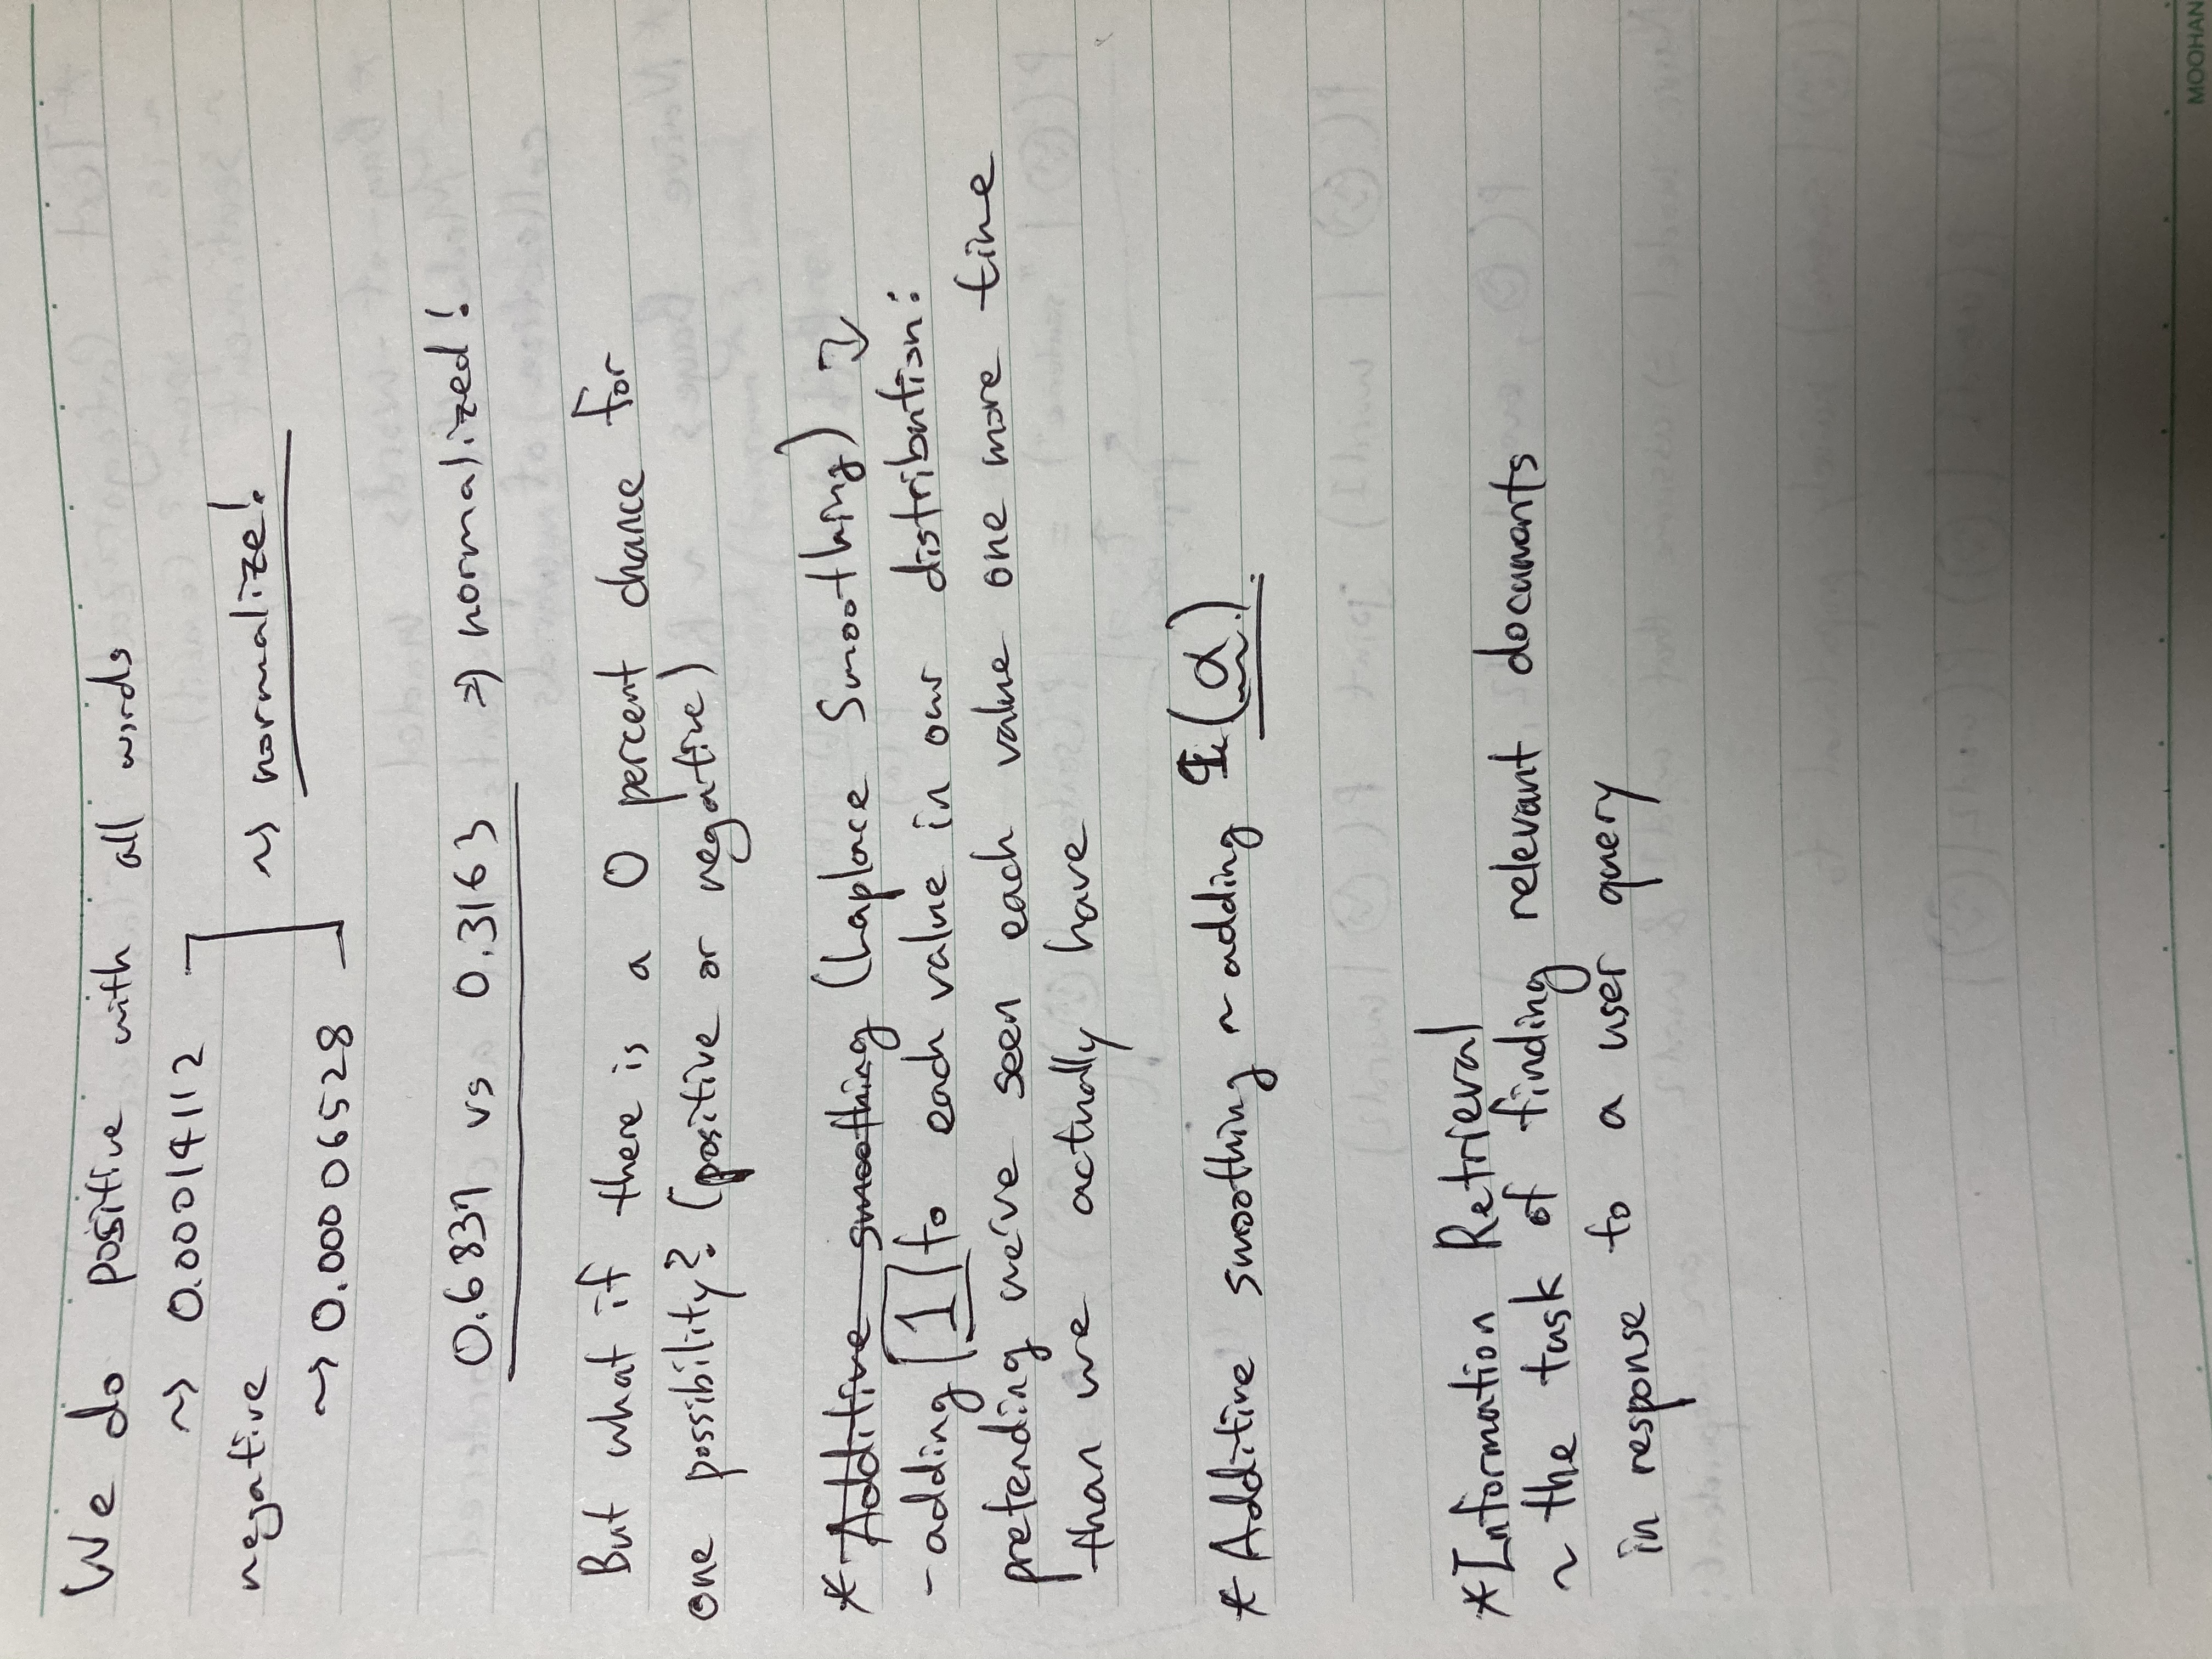 We do positive with all words
~> 0.00014112
negative ~> normalize!
~> 0.00006528
0.6837 vs 0.3163 => normalized!
But what if there is a 0 percent chance for
one possibility? (positive or negative)
* Additive smoothing (Laplace Smoothing)
- adding 1 to each value in our distribution:
pretending we've seen each value one more time
than we actually have
* Additive smoothing ~ adding (α)
* Information Retrieval
~ the task of finding relevant documents
in response to a user query
MOOHAN